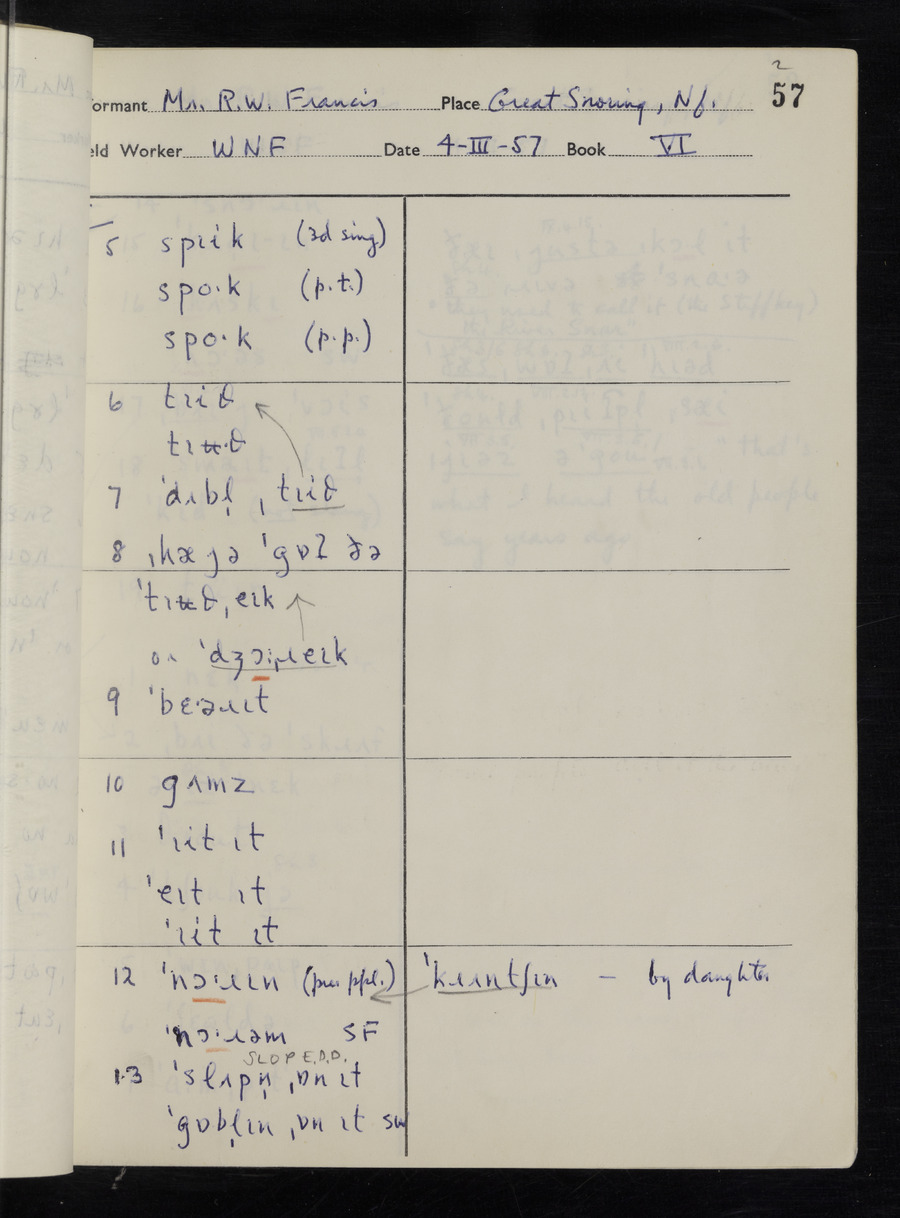 2
ormant Mr. R.W. Francis Place Great Snoring, Nf. 57
eld Worker WNF Date 4-III-57 Book VI
5 spɹik (3d sing)
spo·k (p.t.)
spo·k (p.p.)
6 tɹiθ
tɹʉ·θ
7 ˈdʌbl̩ ˌtɹiθ
8 ˌhæ jə ˈgɒʔ ðə
ˈtɹʉθˌeɪk
or ˈdʒɔːɹeɪk
9 ˈbɛ·əɹɪt
10 gʌmz
11 ˈɪit ɪt
ˈeɪt ɪt
ˈɪit ɪt
12 ˈnɔ·ɪɪn (pres ppl.) ˈkɹʌntʃɪn — by daughter
ˈnɔ·ɪəm SF
SLOP E.D.D.
13 ˈslɒpn̩ ˌɒn ɪt
ˈgɒbl̩ɪn ˌɒn ɪt SW